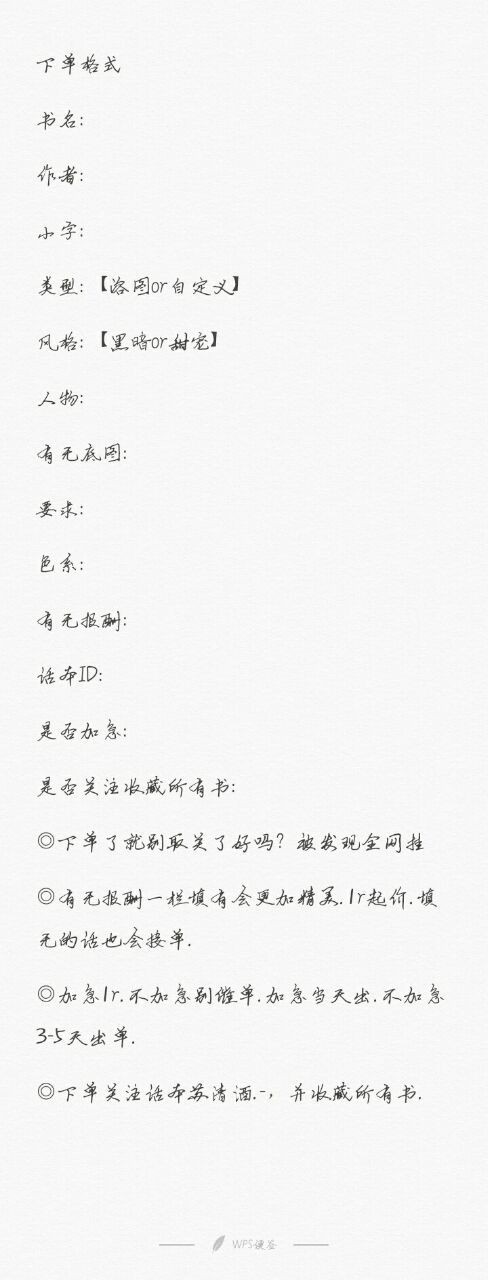 下单格式
书名:
作者:
小字:
类型:【洛图or自定义】
风格:【黑暗or甜宠】
人物:
有无底图:
要求:
色系:
有无报酬:
话本ID:
是否加急:
是否关注收藏所有书:
◎下单了就别取关了好吗？被发现全网挂
◎有无报酬一栏填有会更加精美.1r起价.填
无的话也会接单.
◎加急1r.不加急别催单.加急当天出.不加急
3-5天出单.
◎下单关注话本苏清酒.-，并收藏所有书.
WPS便签